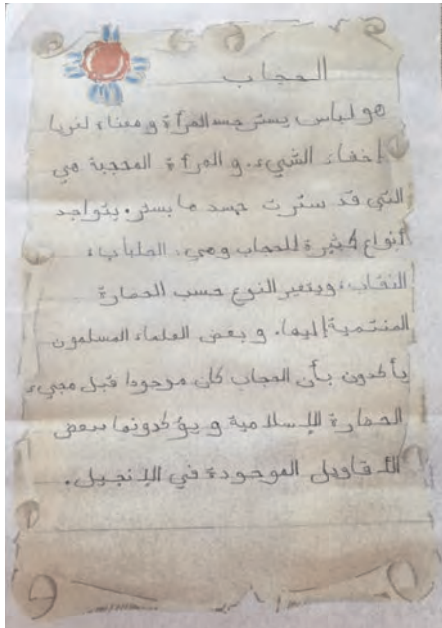 الحجاب
هو لباس يستر جسد المرأة ومعناه لغويا
إخفاء الشيء. و المرأة المحجبة هي
التي قد سترت جسدها بستر. يتواجد
أنواع كثيرة للحجاب وهي: الجلباب،
النقاب، ويتغير النوع حسب الحضارة
المنتمية إليها. و بعض العلماء المسلمون
يأكدون بأن الحجاب كان موجودا قبل مجيء
الحضارة الإسلامية و يؤكدونها ببعض
الأقاويل الموجودة في الإنجيل.